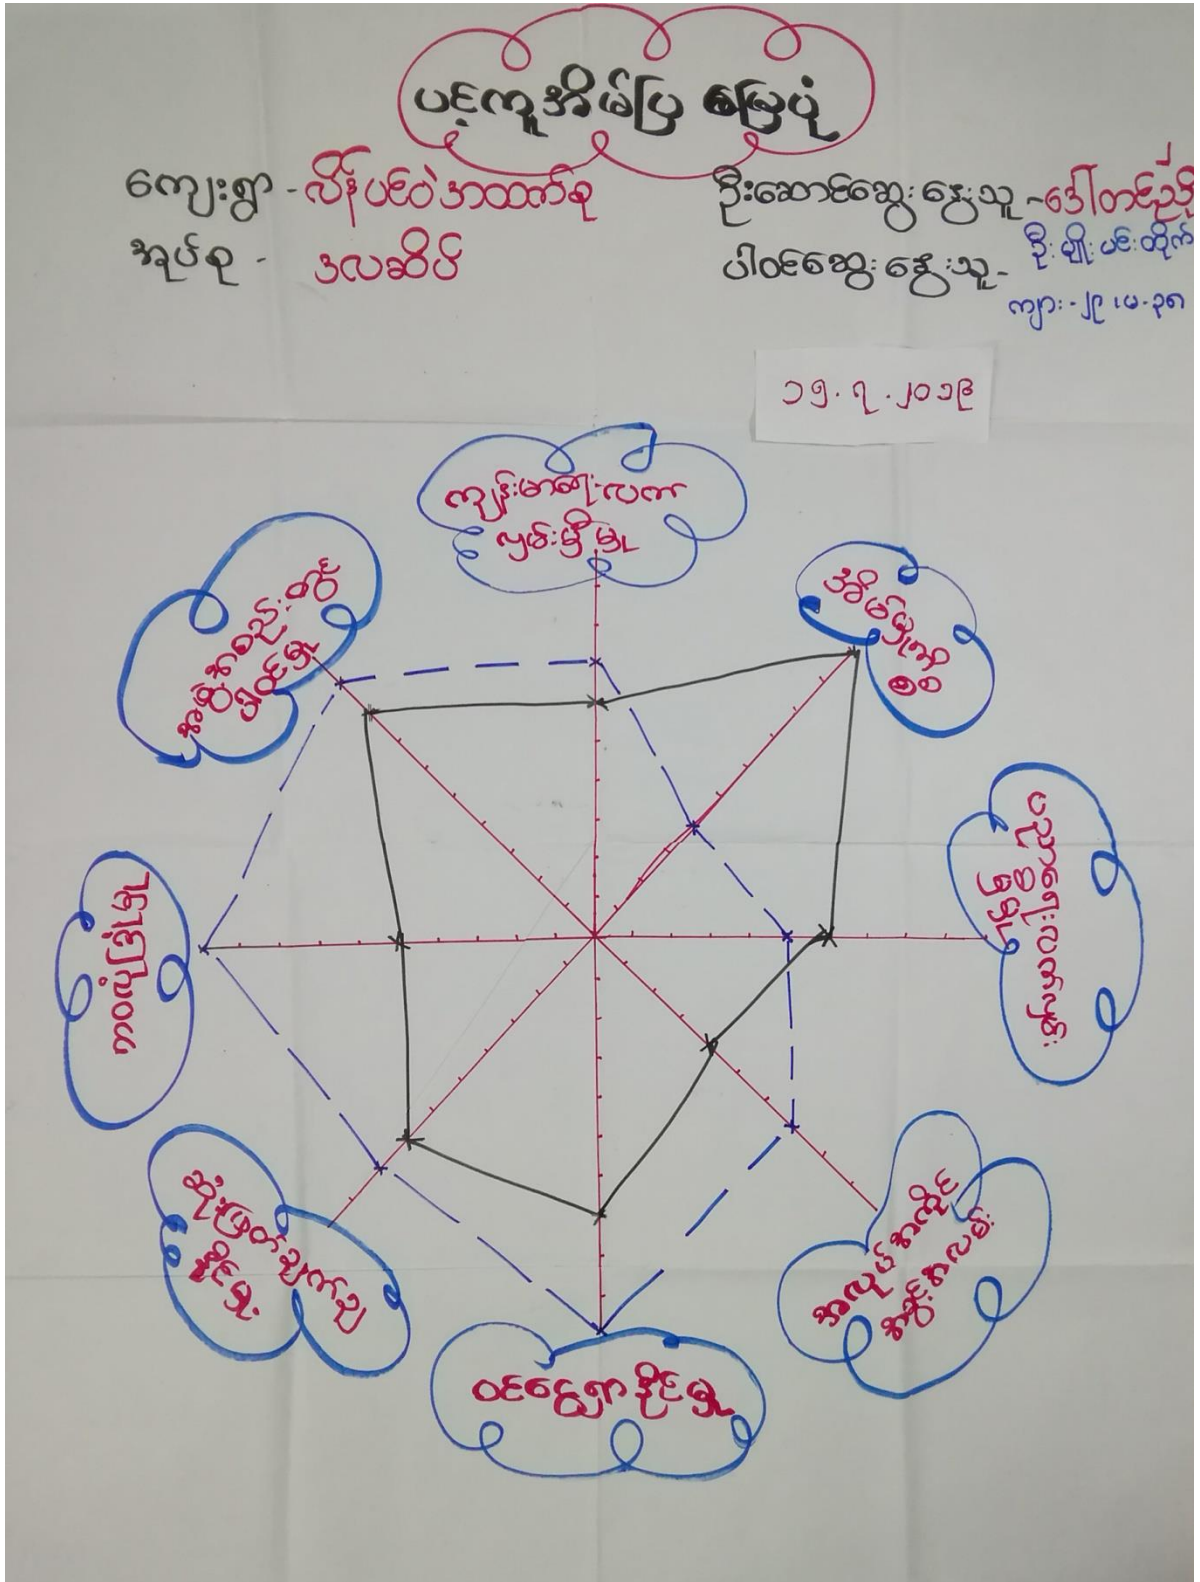 ပင့်ကူအိမ်ပြ မြေပုံ
ကျေးရွာ - လိန်ပင်ဝဲအထက်စု
အုပ်စု - ဒလဆိပ်
ဦးဆောင်ဆွေးနွေးသူ -
ပါဝင်ဆွေးနွေးသူ -
ကျား - ၂၉၊ မ - ၃၈
၁၅.၇.၂၀၁၉
ကျန်းမာရေးလက်
လှမ်းမှီမှု
အိမ်မှုကိစ္စ
ပညာရေးလက်လှမ်း
မှီမှု
အလုပ်အကိုင်
အခွင့်အလမ်း
ဝင်ငွေရှာနိုင်မှု
ဆုံးဖြတ်ချက်ချ
နိုင်မှု
အဖွဲ့အစည်းတွင်
ပါဝင်မှု